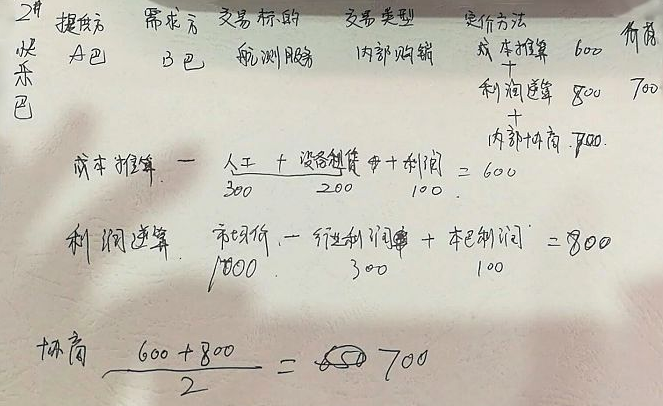 2# 提供方 需求方 交易标的 交易类型 定价方法 价格
快乐巴 A巴 B巴 航测服务 内部购销 成本推算 600
+
利润逆算 800 700
+
内部协商 700.
成本推算 — 人工 + 设备租赁 + 利润 = 600
300 200 100
利润逆算 市场价 — 行业利润 + 本巴利润 = 800
1000 300 100
协商 600+800 = 700
2